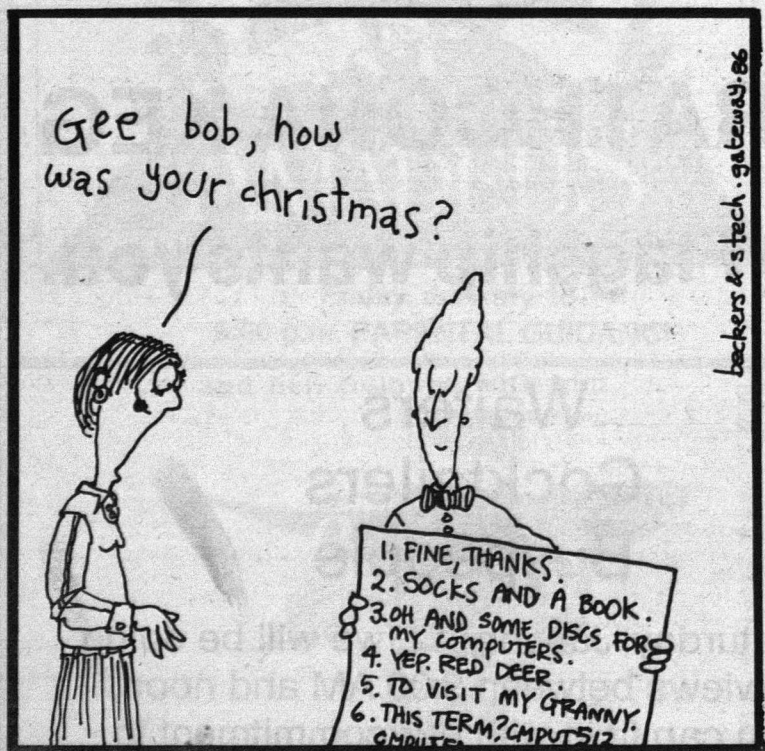 Gee bob, how
was your christmas?
beckers & stech · gateway · 86
1. FINE, THANKS.
2. SOCKS AND A BOOK.
3. OH AND SOME DISCS FOR
MY COMPUTERS.
4. YEP. RED DEER
5. TO VISIT MY GRANNY.
6. THIS TERM? CMPUT 512